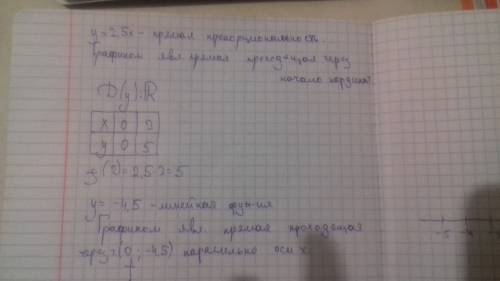 y=2,5x - прямая пропорциональность.
Графиком явл. прямая проходящая через
начало координат
D(y):R
x 0 2
y 0 5
y(2)=2,5·2=5
y= -4,5 - линейная функ-ия
Графиком явл. прямая проходящая
через (0; -4,5) параллельно оси x
-5 -4